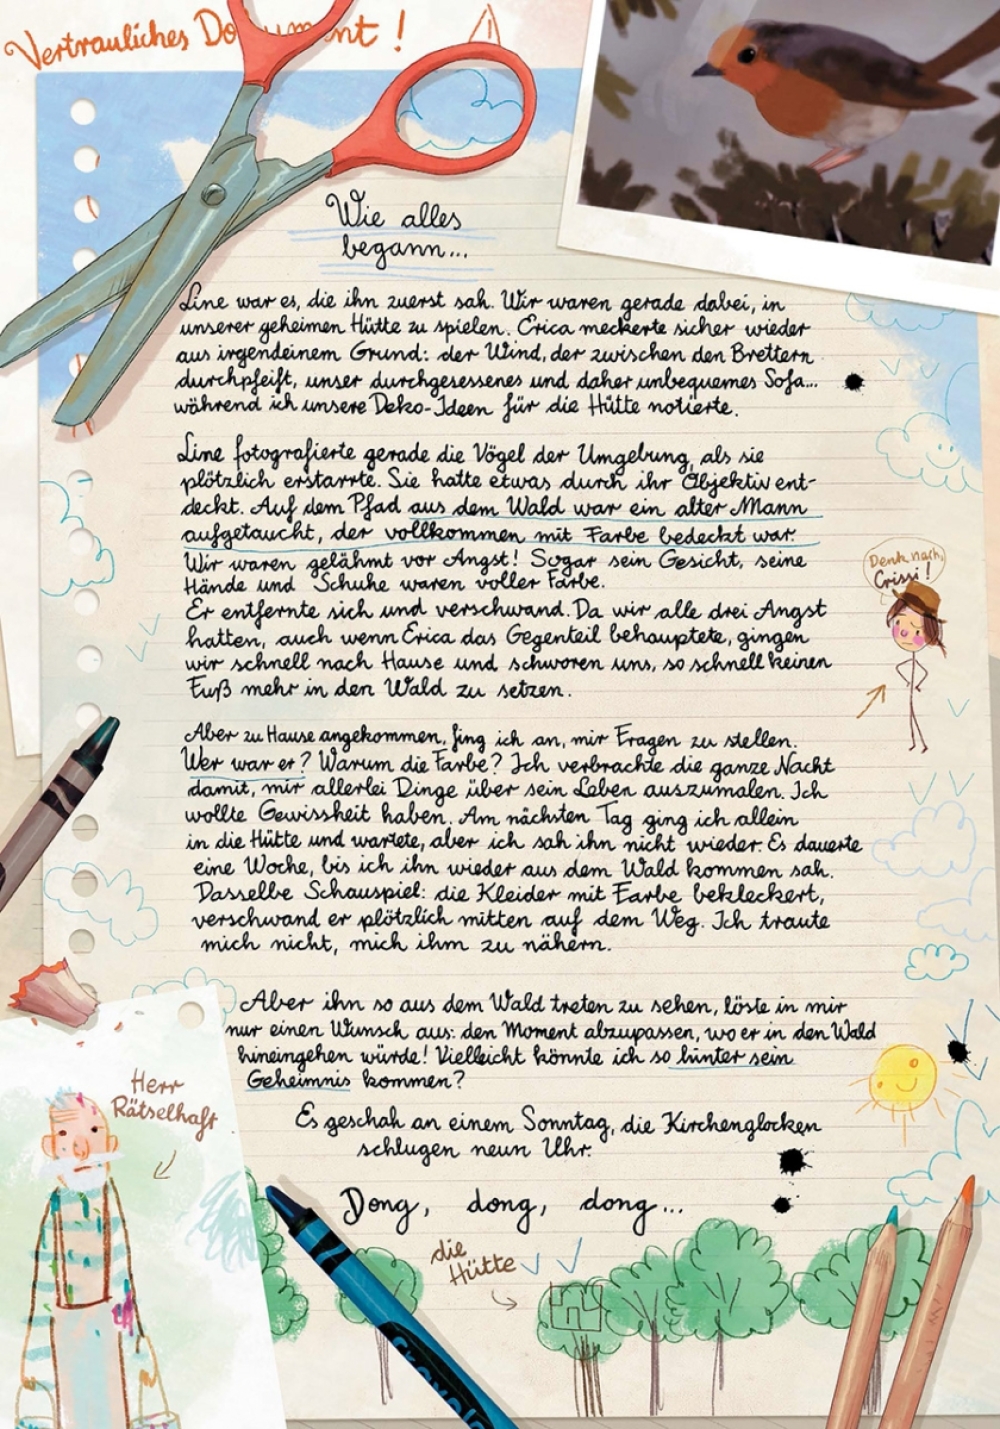 Vertrauliches Dokument !
Wie alles
begann...
Line war es, die ihn zuerst sah. Wir waren gerade dabei, in
unserer geheimen Hütte zu spielen. Erica meckerte sicher wieder
aus irgendeinem Grund: der Wind, der zwischen den Brettern
durchpfeift, unser durchgesessenes und daher unbequemes Sofa...
während ich unsere Deko-Ideen für die Hütte notierte.
Line fotografierte gerade die Vögel der Umgebung, als sie
plötzlich erstarrte. Sie hatte etwas durch ihr Objektiv ent-
deckt. Auf dem Pfad aus dem Wald war ein alter Mann
aufgetaucht, der vollkommen mit Farbe bedeckt war.
Wir waren gelähmt vor Angst! Sogar sein Gesicht, seine
Hände und Schuhe waren voller Farbe.
Er entfernte sich und verschwand. Da wir alle drei Angst
hatten, auch wenn Erica das Gegenteil behauptete, gingen
wir schnell nach Hause und schworen uns, so schnell keinen
Fuß mehr in den Wald zu setzen.
Denk nach,
Crissi !
Aber zu Hause angekommen, fing ich an, mir Fragen zu stellen.
Wer war er? Warum die Farbe? Ich verbrachte die ganze Nacht
damit, mir allerlei Dinge über sein Leben auszumalen. Ich
wollte Gewissheit haben. Am nächsten Tag ging ich allein
in die Hütte und wartete, aber ich sah ihn nicht wieder. Es dauerte
eine Woche, bis ich ihn wieder aus dem Wald kommen sah.
Dasselbe Schauspiel: die Kleider mit Farbe bekleckert,
verschwand er plötzlich mitten auf dem Weg. Ich traute
mich nicht, mich ihm zu nähern.
Aber ihn so aus dem Wald treten zu sehen, löste in mir
nur einen Wunsch aus: den Moment abzupassen, wo er in den Wald
hineingehen würde! Vielleicht könnte ich so hinter sein
Geheimnis kommen?
Herr
Rätselhaft
Es geschah an einem Sonntag, die Kirchenglocken
schlugen neun Uhr.
Dong, dong, dong...
die
Hütte